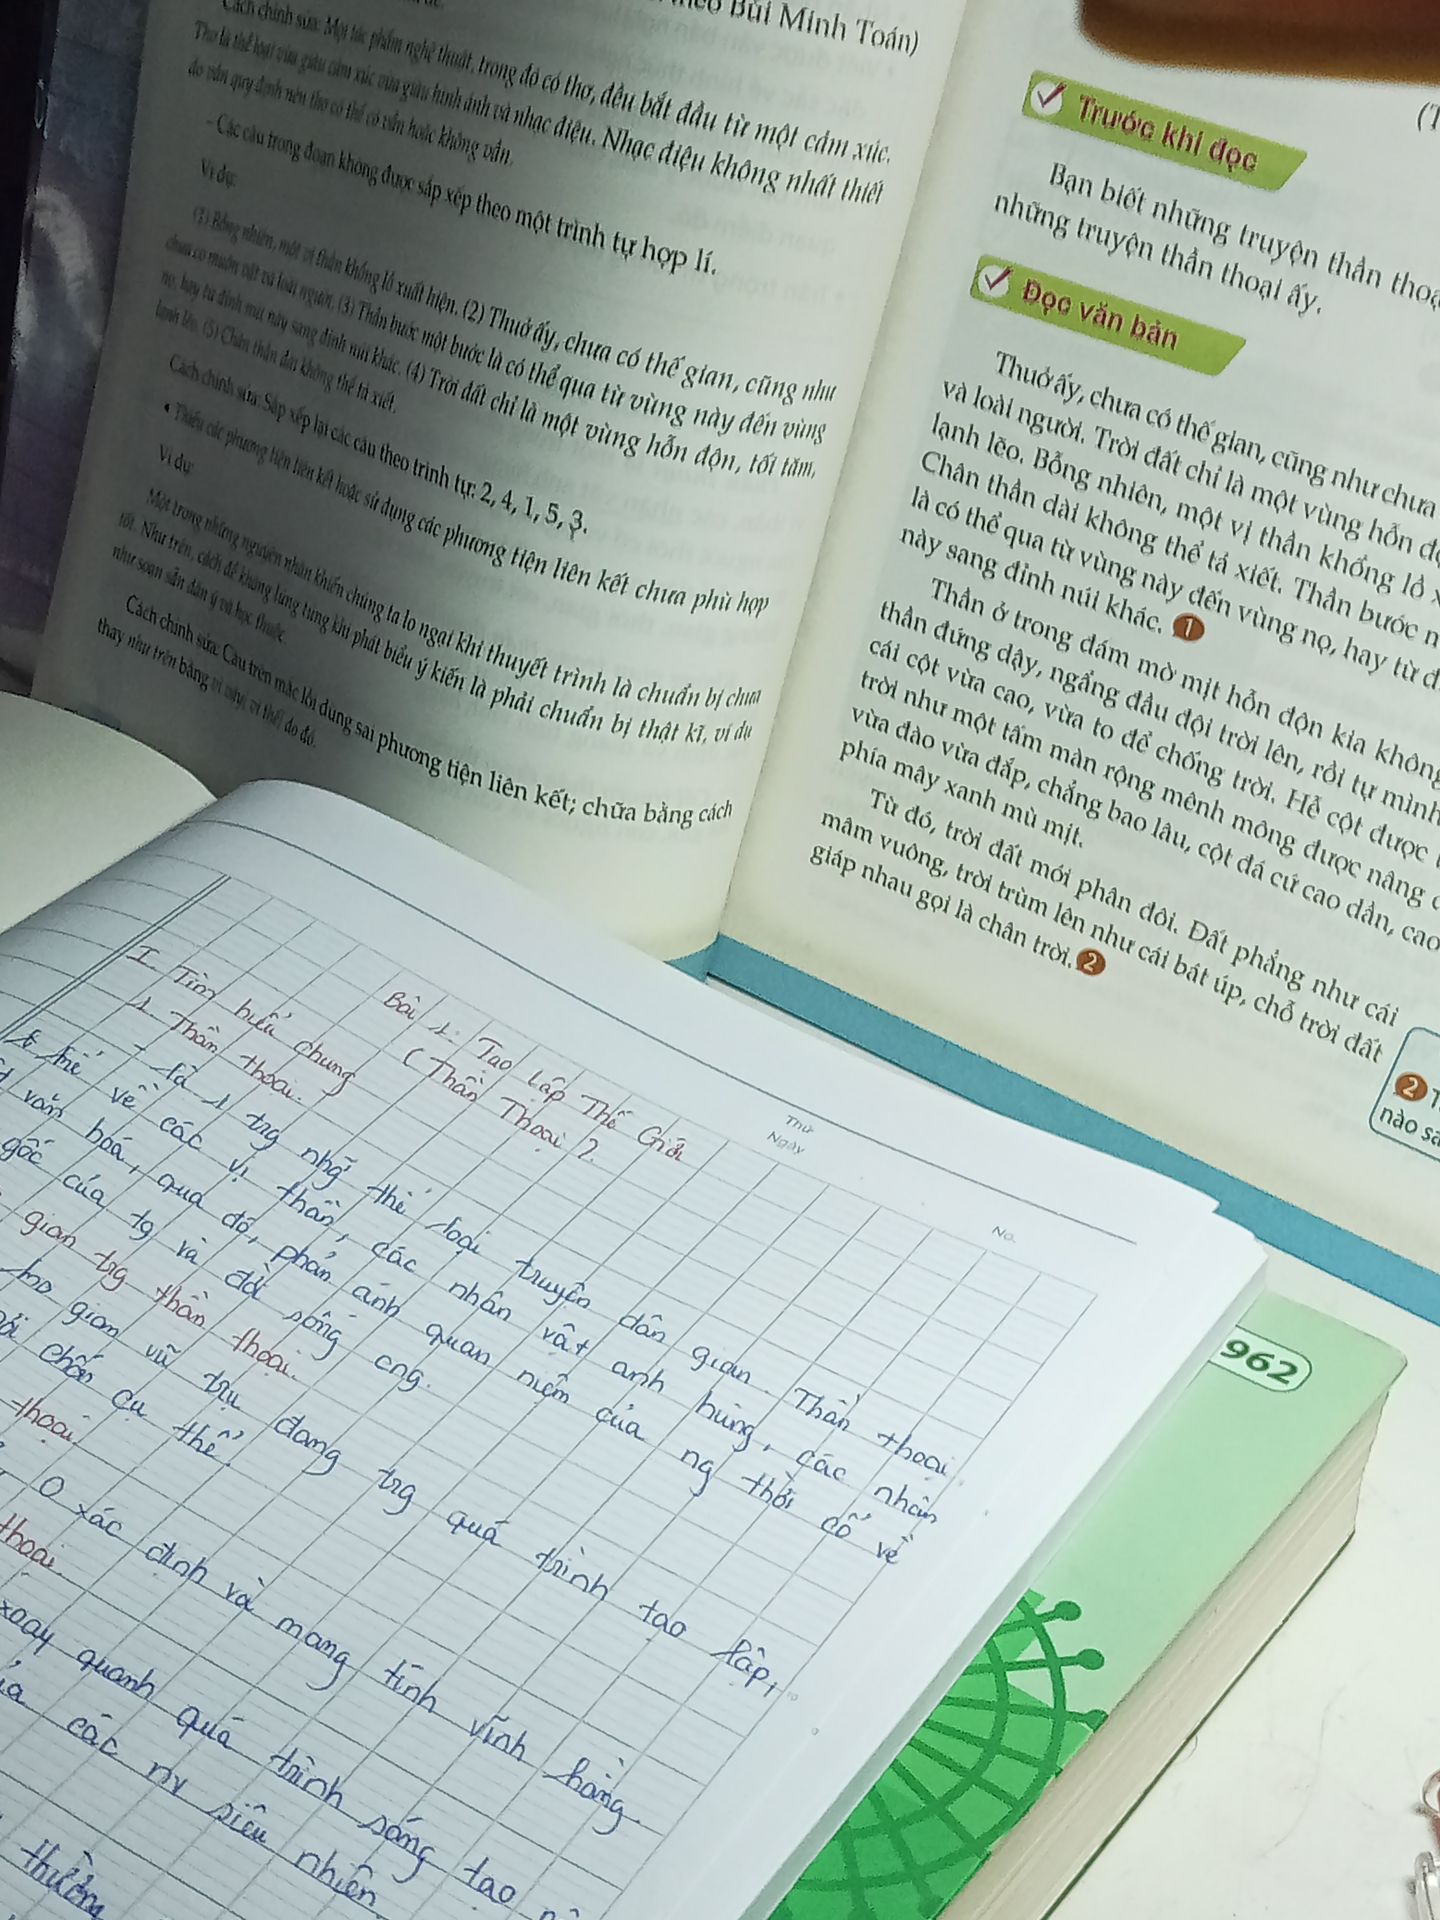 theo Bùi Minh Toán)
Cách chỉnh sửa: Mọi tác phẩm nghệ thuật, trong đó có thơ, đều bắt đầu từ một cảm xúc.
Thơ là thể loại vừa giàu cảm xúc vừa giàu hình ảnh và nhạc điệu. Nhạc điệu không nhất thiết
do vần quy định nên thơ có thể có vần hoặc không vần.
– Các câu trong đoạn không được sắp xếp theo một trình tự hợp lí.
Ví dụ:
(1) Bỗng nhiên, một vị thần khổng lồ xuất hiện. (2) Thuở ấy, chưa có thế gian, cũng như
chưa có muôn vật và loài người. (3) Thần bước một bước là có thể qua từ vùng này đến vùng
nọ, hay từ đỉnh núi này sang đỉnh núi khác. (4) Trời đất chỉ là một vùng hỗn độn, tối tăm,
lạnh lẽo. (5) Chân thần dài không thể tả xiết.
Cách chỉnh sửa: Sắp xếp lại các câu theo trình tự: 2, 4, 1, 5, 3.
• Thiếu các phương tiện liên kết hoặc sử dụng các phương tiện liên kết chưa phù hợp
Ví dụ:
Một trong những nguyên nhân khiến chúng ta lo ngại khi thuyết trình là chuẩn bị chưa
tốt. Như trên, cách để không lúng túng khi phát biểu ý kiến là phải chuẩn bị thật kĩ, ví dụ
như soạn sẵn dàn ý và học thuộc.
Cách chỉnh sửa: Câu trên mắc lỗi dùng sai phương tiện liên kết; chữa bằng cách
thay như trên bằng vì vậy, vì thế, do đó.
(T
Trước khi đọc
Bạn biết những truyện thần thoạ
những truyện thần thoại ấy.
Đọc văn bản
Thuở ấy, chưa có thế gian, cũng như chưa
và loài người. Trời đất chỉ là một vùng hỗn độ
lạnh lẽo. Bỗng nhiên, một vị thần khổng lồ x
Chân thần dài không thể tả xiết. Thần bước m
là có thể qua từ vùng này đến vùng nọ, hay từ đ
này sang đỉnh núi khác. 1
Thần ở trong đám mờ mịt hỗn độn kia không
thần đứng dậy, ngẩng đầu đội trời lên, rồi tự mình
cái cột vừa cao, vừa to để chống trời. Hễ cột được
trời như một tấm màn rộng mênh mông được nâng
vừa đào vừa đắp, chẳng bao lâu, cột đá cứ cao dần, cao
phía mây xanh mù mịt.
Từ đó, trời đất mới phân đôi. Đất phẳng như cái
mâm vuông, trời trùm lên như cái bát úp, chỗ trời đất
giáp nhau gọi là chân trời. 2
2 T
nào sa
Thứ
Ngày
No.
Bài 1: Tạo Lập Thế Giới
(Thần Thoại).
I. Tìm hiểu chung
1. Thần thoại.
- là 1 trg nhg~ thể loại truyện dân gian. Thần thoại
kể về các vị thần, các nhân vật anh hùng, các nhân
văn hoá, qua đó, phản ánh quan niệm của ng thời cổ về
gốc của tg và đời sống cng.
gian trg thần thoại.
gian vũ trụ đang trg quá trình tạo lập,
chốn cụ thể.
thoại.
0 xác định và mang tính vĩnh hằng.
thoại.
xoay quanh quá trình sáng tạo
các nv siêu nhiên
thường
962